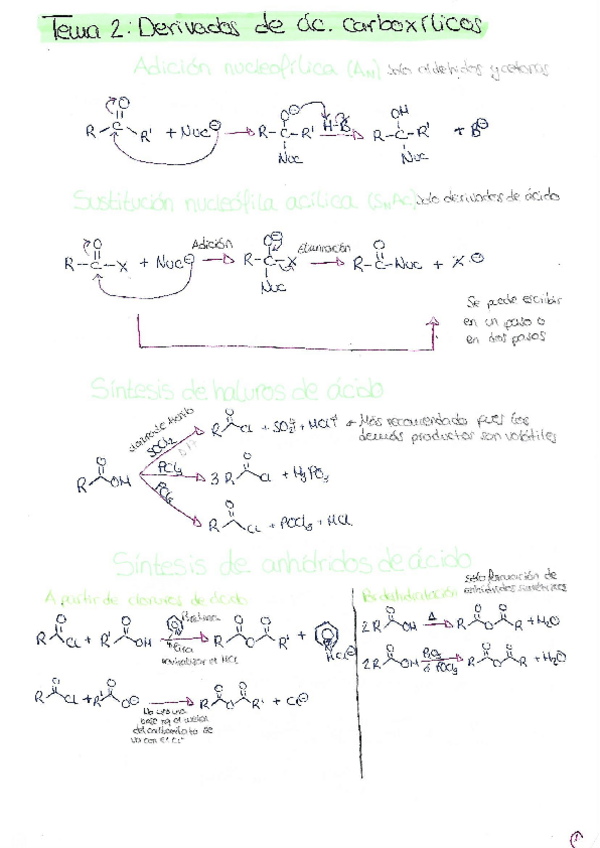 Tema 2: Derivados de ác. carboxílicos
Adición nucleofílica (AN) solo aldehidos y cetonas
O
R-C-R' + Nuc⊖ → R-C-R' H-B → R-C-R' + B⊖
O⊖
OH
Nuc
Nuc
Sustitución nucleófila acílica (SNAc) solo derivados de ácido
R-C-X + Nuc⊖ Adición → R-C-X Eliminación → R-C-Nuc + X⊖
O
O⊖
O
Nuc
Se puede escribir
en un paso o
en dos pasos
Síntesis de haluros de ácido
SOCl2
R Cl + SO2↑ + HCl↑ → Más recomendado pues los
demás productos son volátiles
R OH
PCl3
3 R Cl + H3PO3
PCl5
R Cl + POCl3 + HCl
Síntesis de anhídridos de ácido
A partir de cloruros de ácido
R Cl + R' OH
Piridina
Para
neutralizar el HCl
R O R' +
R Cl + R' O⊖ → R O R' + Cl⊖
No usa una
base
del carboxilato se
va con el Cl⁻
Por deshidratación
solo formación de
anhídridos simétricos
2 R OH Δ → R O R + H2O
2 R OH P2O5 ó POCl3 → R O R + H2O
1